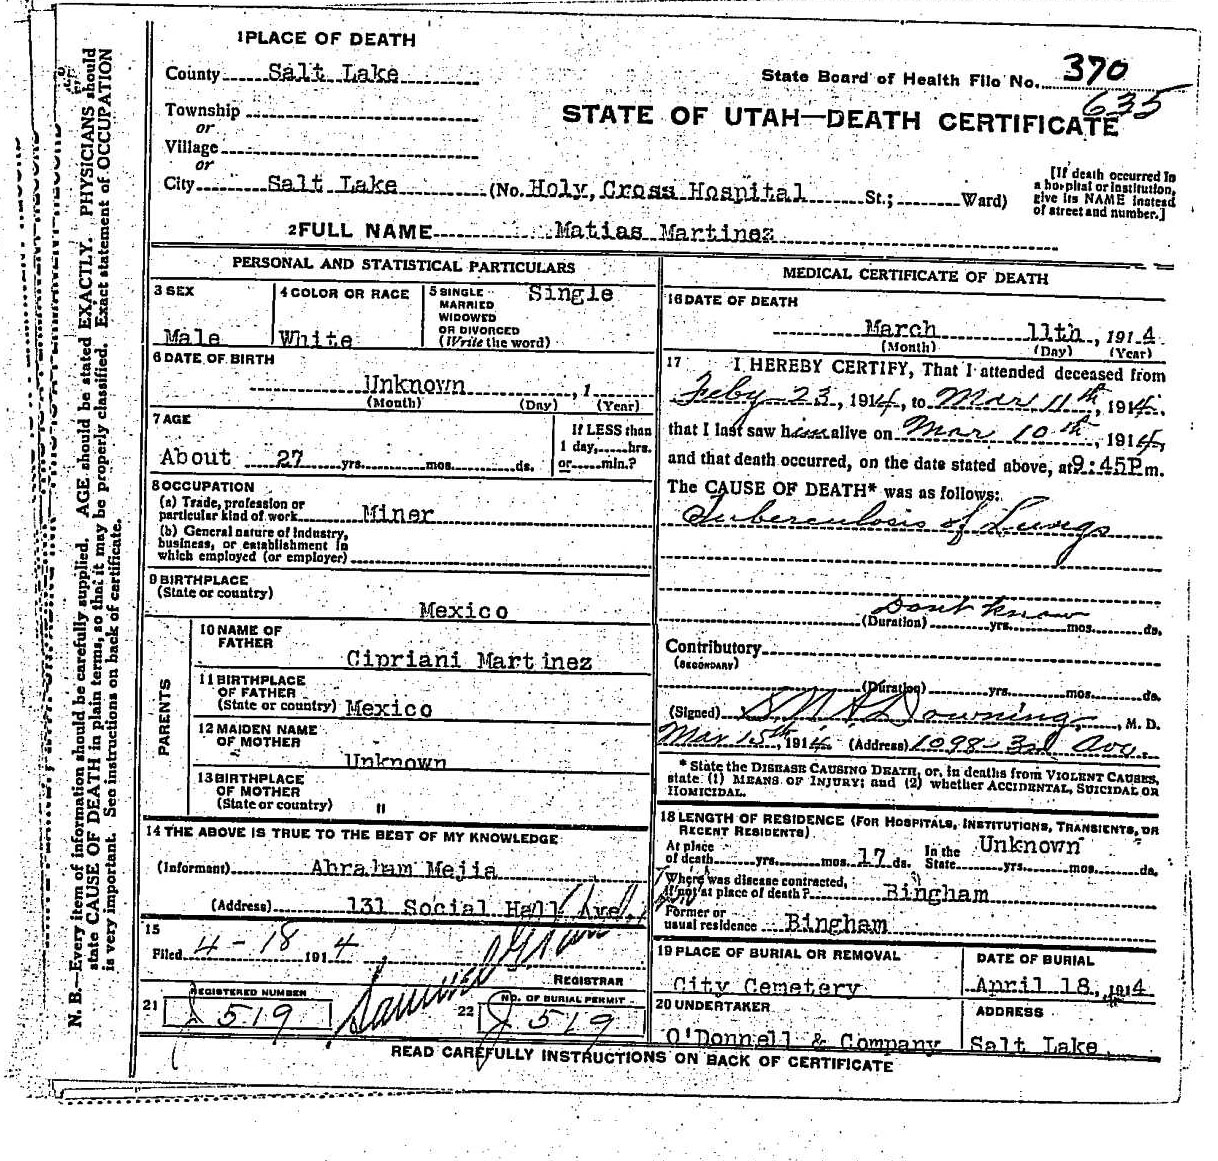 1 PLACE OF DEATH
County Salt Lake
State Board of Health File No. 370
635
Township
or
Village
or
STATE OF UTAH—DEATH CERTIFICATE
City Salt Lake (No. Holy, Cross Hospital St.; Ward)
[If death occurred in
a hospital or institution,
give its NAME instead
of street and number.]
2 FULL NAME Matias Martinez
PERSONAL AND STATISTICAL PARTICULARS
3 SEX
Male
4 COLOR OR RACE
White
5 SINGLE
MARRIED
WIDOWED
OR DIVORCED
(Write the word)
Single
6 DATE OF BIRTH
Unknown , 1
(Month) (Day) (Year)
7 AGE
About 27 yrs. mos. ds.
If LESS than
1 day, hrs.
or min.?
8 OCCUPATION
(a) Trade, profession or
particular kind of work Miner
(b) General nature of Industry,
business, or establishment in
which employed (or employer)
9 BIRTHPLACE
(State or country)
Mexico
PARENTS
10 NAME OF
FATHER
Cipriani Martinez
11 BIRTHPLACE
OF FATHER
(State or country) Mexico
12 MAIDEN NAME
OF MOTHER
Unknown
13 BIRTHPLACE
OF MOTHER
(State or country) "
14 THE ABOVE IS TRUE TO THE BEST OF MY KNOWLEDGE
(Informant) Abraham Mejia
(Address) 131 Social Hall Ave.
15
Filed 4-18 1914
REGISTRAR
21 REGISTERED NUMBER
519
22 NO. OF BURIAL PERMIT
519
MEDICAL CERTIFICATE OF DEATH
16 DATE OF DEATH
March 11th, 1914
(Month) (Day) (Year)
17 I HEREBY CERTIFY, That I attended deceased from
Feby 23, 1914, to Mar 11th, 1914,
that I last saw him alive on Mar 10th, 1914,
and that death occurred, on the date stated above, at 9:45P m.
The CAUSE OF DEATH* was as follows:
Tuberculosis of Lungs
Dont know
(Duration) yrs. mos. ds.
Contributory
(SECONDARY)
(Duration) yrs. mos. ds.
(Signed) Downing, M. D.
Mar 15th, 1914 (Address) 1098-3rd Ave.
* State the DISEASE CAUSING DEATH, or, in deaths from VIOLENT CAUSES,
state (1) MEANS OF INJURY; and (2) whether ACCIDENTAL, SUICIDAL OR
HOMICIDAL.
18 LENGTH OF RESIDENCE (FOR HOSPITALS, INSTITUTIONS, TRANSIENTS, OR
RECENT RESIDENTS)
At place
of death yrs. mos. 17 ds.
In the
State Unknown yrs. mos. ds.
Where was disease contracted,
if not at place of death? Bingham
Former or
usual residence Bingham
19 PLACE OF BURIAL OR REMOVAL
City Cemetery
DATE OF BURIAL
April 18, 1914
20 UNDERTAKER
O'Donnell & Company
ADDRESS
Salt Lake
READ CAREFULLY INSTRUCTIONS ON BACK OF CERTIFICATE
N. B.—Every item of information should be carefully supplied. AGE should be stated EXACTLY. PHYSICIANS should
state CAUSE OF DEATH in plain terms, so that it may be properly classified. Exact statement of OCCUPATION
is very important. See instructions on back of certificate.